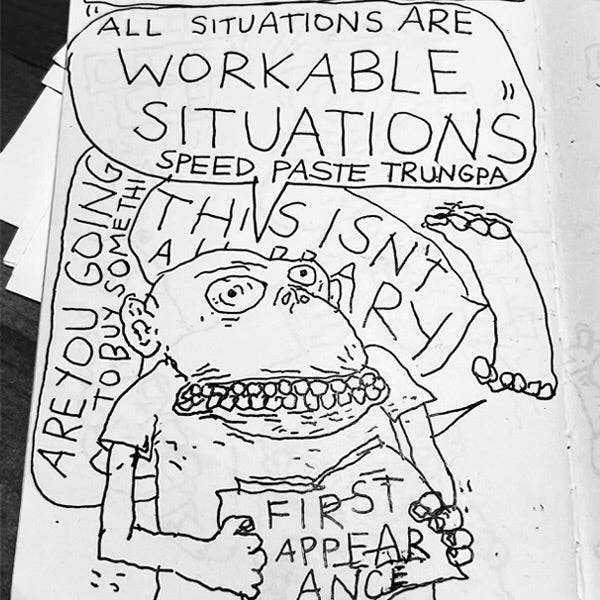 "ALL SITUATIONS ARE
WORKABLE
SITUATIONS"
SPEED PASTE TRUNGPA
THIS ISN'T
A LIBRARY
ARE YOU GOING
TO BUY SOMETHI
FIRST
APPEAR
ANCE